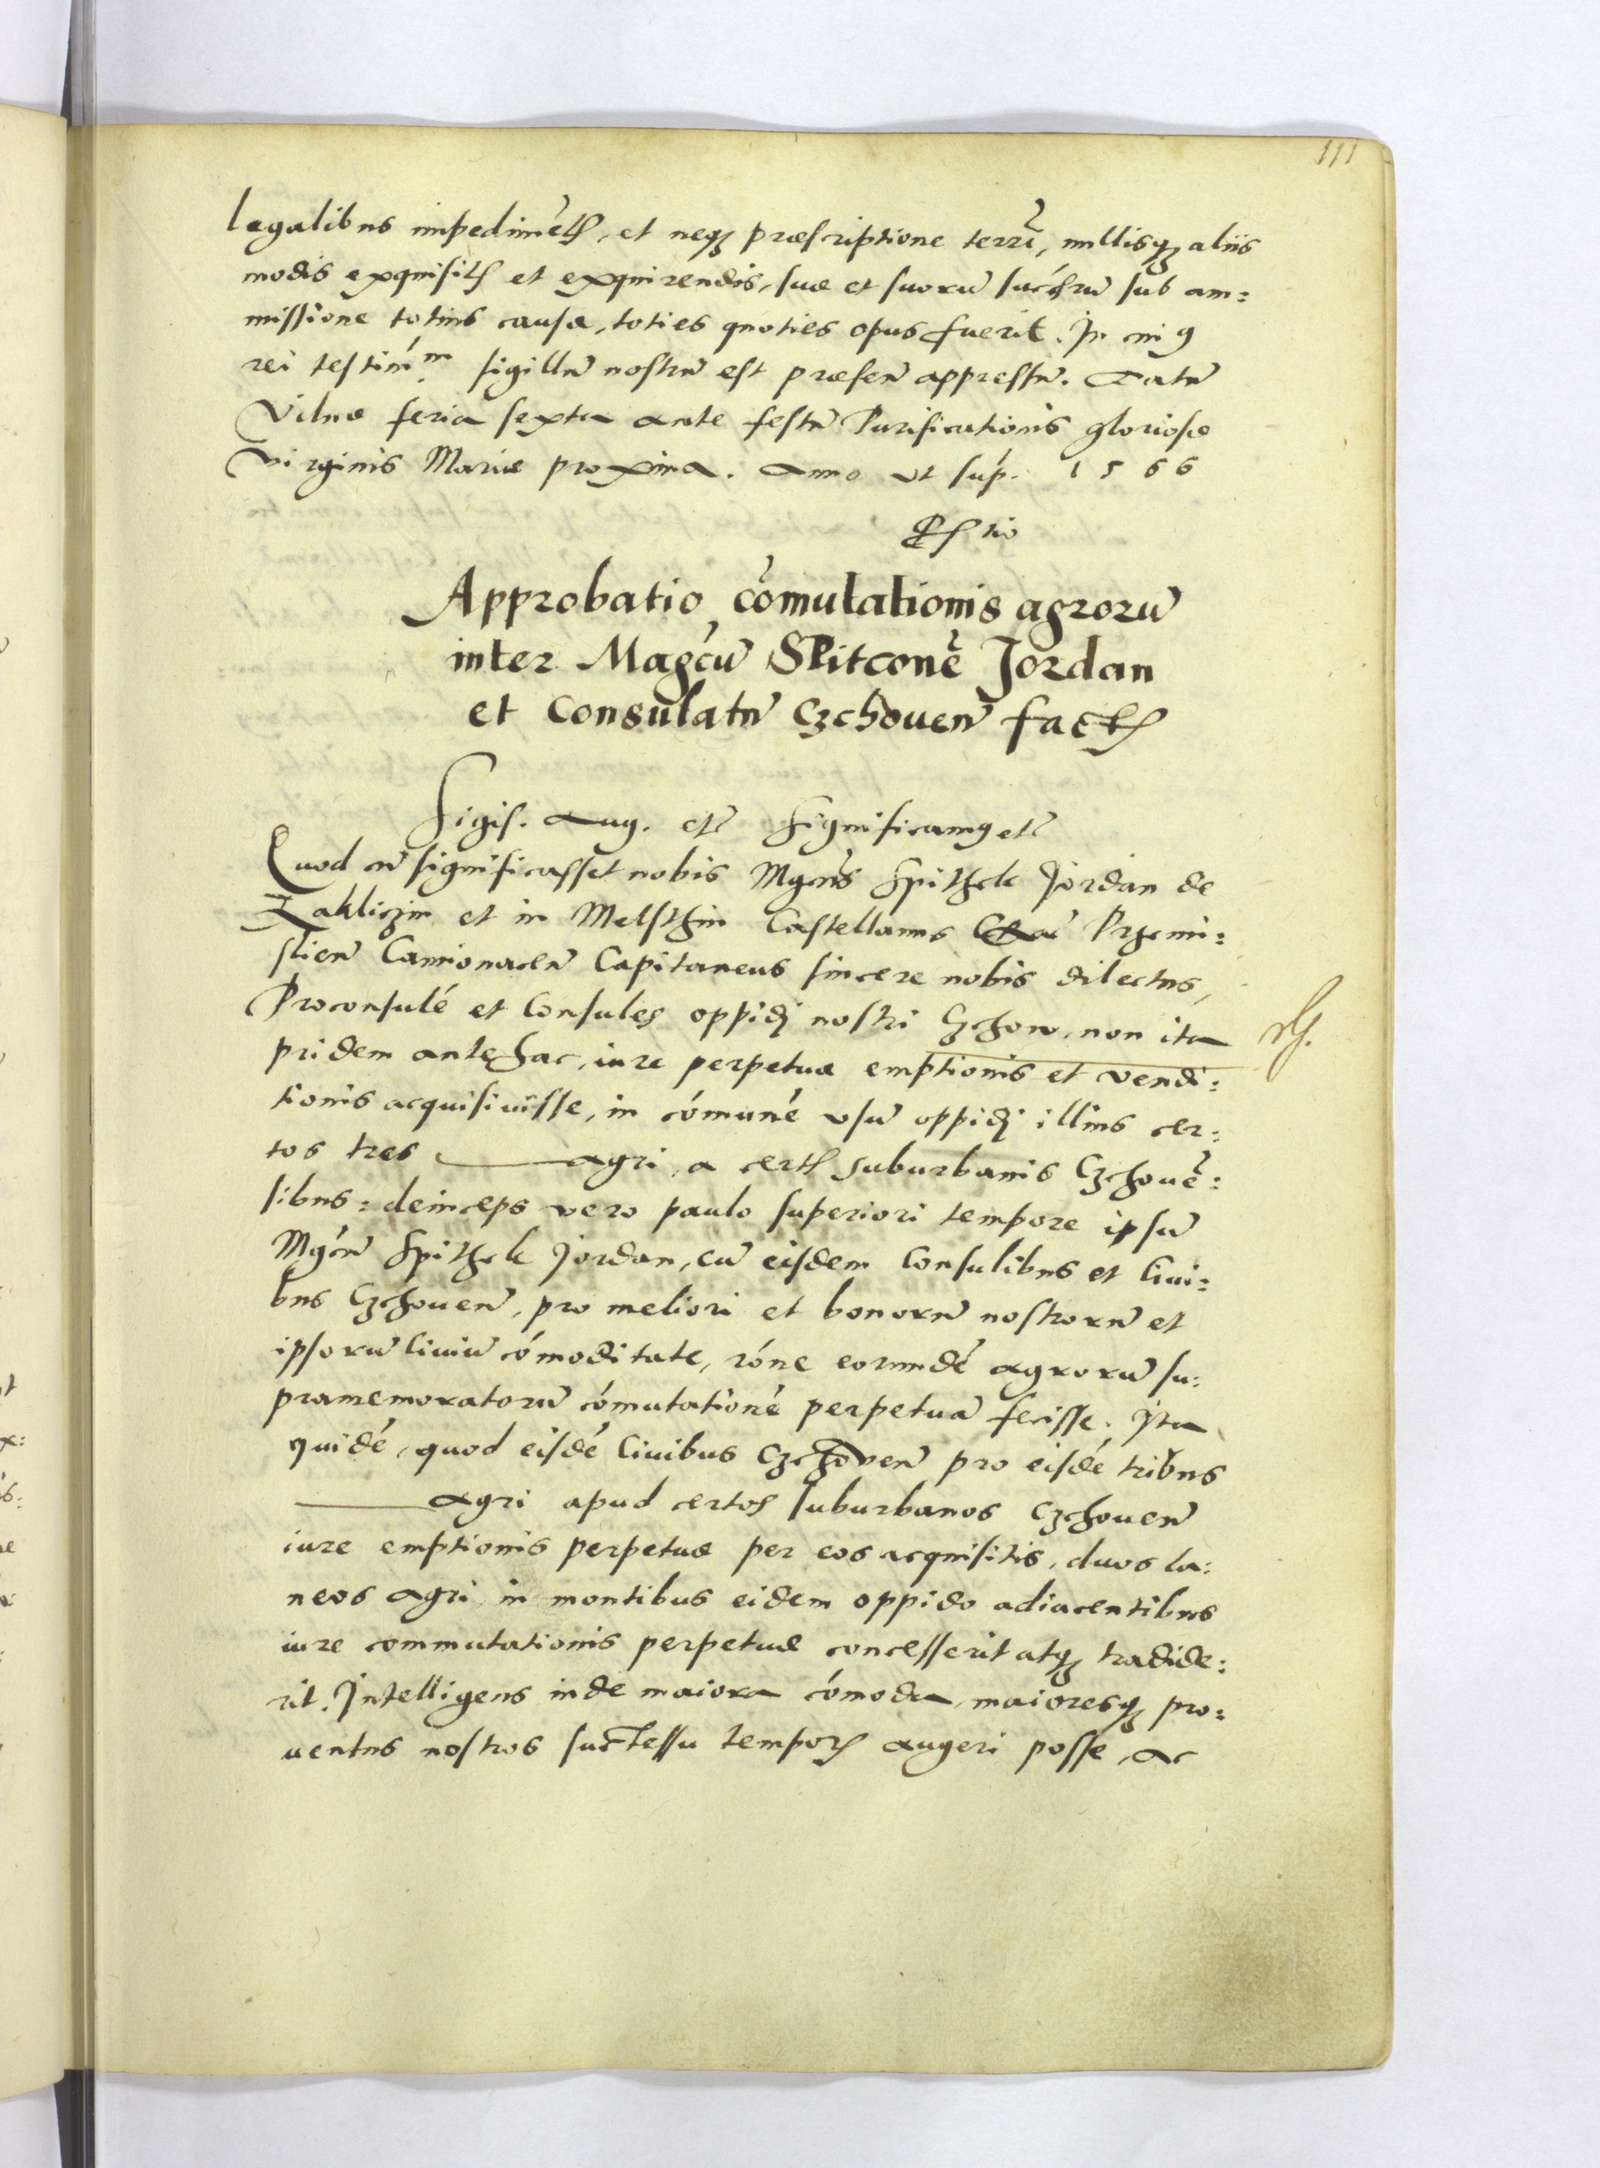 111
legalibus impedimẽtꝭ, et neqꝫ præscriptione terrĩ, nullisqꝫ aliis
modis exquisitꝭ et exquirendis, suæ et suorũ succ̃orũ sub am:
missione totius causæ, toties quoties opus fuerit. In cuiꝰ
rei testim̃ᵐ sigillũ nostrũ est præsen̄ appressũ. Datũ
Vilnæ feria sexta ante festũ Purificationis gloriosæ
Virginis Mariæ proxima. Anno ut sup̃. 1566
Approbatio cõmutationis agrorũ
inter Magc̃ũ Spitconẽ Jordan
et Consulatũ Czchouen̄ factꝭ
Sigis. Aug. etc̃ Significamꝰ etc̃
Quod cũ significasset nobis Mgcũs Spithek Jordan de
Zakliczin et in Melsthin Castellanus Prȝemi:
slien̄ Camionacen̄ Capitaneus sincere nobis dilectus,
Proconsulẽ et Consules oppidj nostri Czchow, non ita
pridem antehac, iure perpetuæ emptionis et vendi:
tionis acquisiuisse, in cõmunẽ vsũ oppidj illius cer:
tos tres ——— agri, a certꝭ suburbanis Czchouẽ:
sibus: deinceps vero paulo superiori tempore ipsũ
Mgc̃ũ Spithek Jordan, cũ eisdem Consulibus et Ciui:
bus Czchouen̄, pro meliori et bonorũ nostrorũ et
ipsorũ Ciuiũ cõmoditate, rõne eorundẽ agrorũ su:
pramemoratorũ cõmutationẽ perpetuã fecisse. Ita
quidẽ, quod eisdẽ Ciuibus Czchouen̄ pro eisdẽ tribus
——— agri apud certos suburbanos Czchouen̄
iure emptionis perpetuæ per eos acquisitis, duos la:
neos agri in montibus eidem oppido adiacentibus
iure commutationis perpetuæ concesserit atqꝫ tradide:
rit. Intelligens inde maiora cõmoda, maioresqꝫ pro:
uentus nostros successu temporꝭ augeri posse, ac